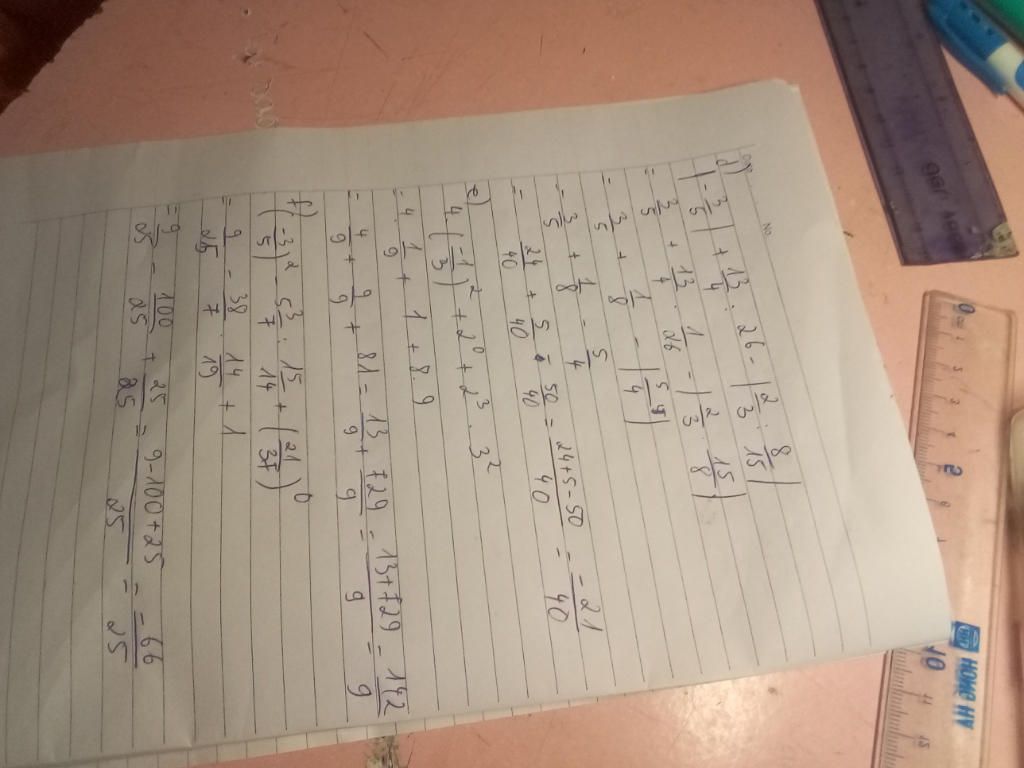 No.
d)
|-3/5| + 13/4 : 26 - |2/3 : 8/15|
= 3/5 + 13/4 . 1/26 - |2/3 . 15/8|
= 3/5 + 1/8 - |5/4|
= 3/5 + 1/8 - 5/4
= 24/40 + 5/40 - 50/40 = 24+5-50/40 = -21/40
e)
4(-1/3)² + 2⁰ + 2³ . 3²
= 4 . 1/9 + 1 + 8 . 9
= 4/9 + 9/9 + 81 = 13/9 + 729/9 = 13+729/9 = 742/9
f)
(-3/5)² - 5 3/7 : 15/14 + (21/37)⁰
= 9/25 - 38/7 . 14/19 + 1
= 9/25 - 100/25 + 25/25 = 9-100+25/25 = -66/25
HONG HA